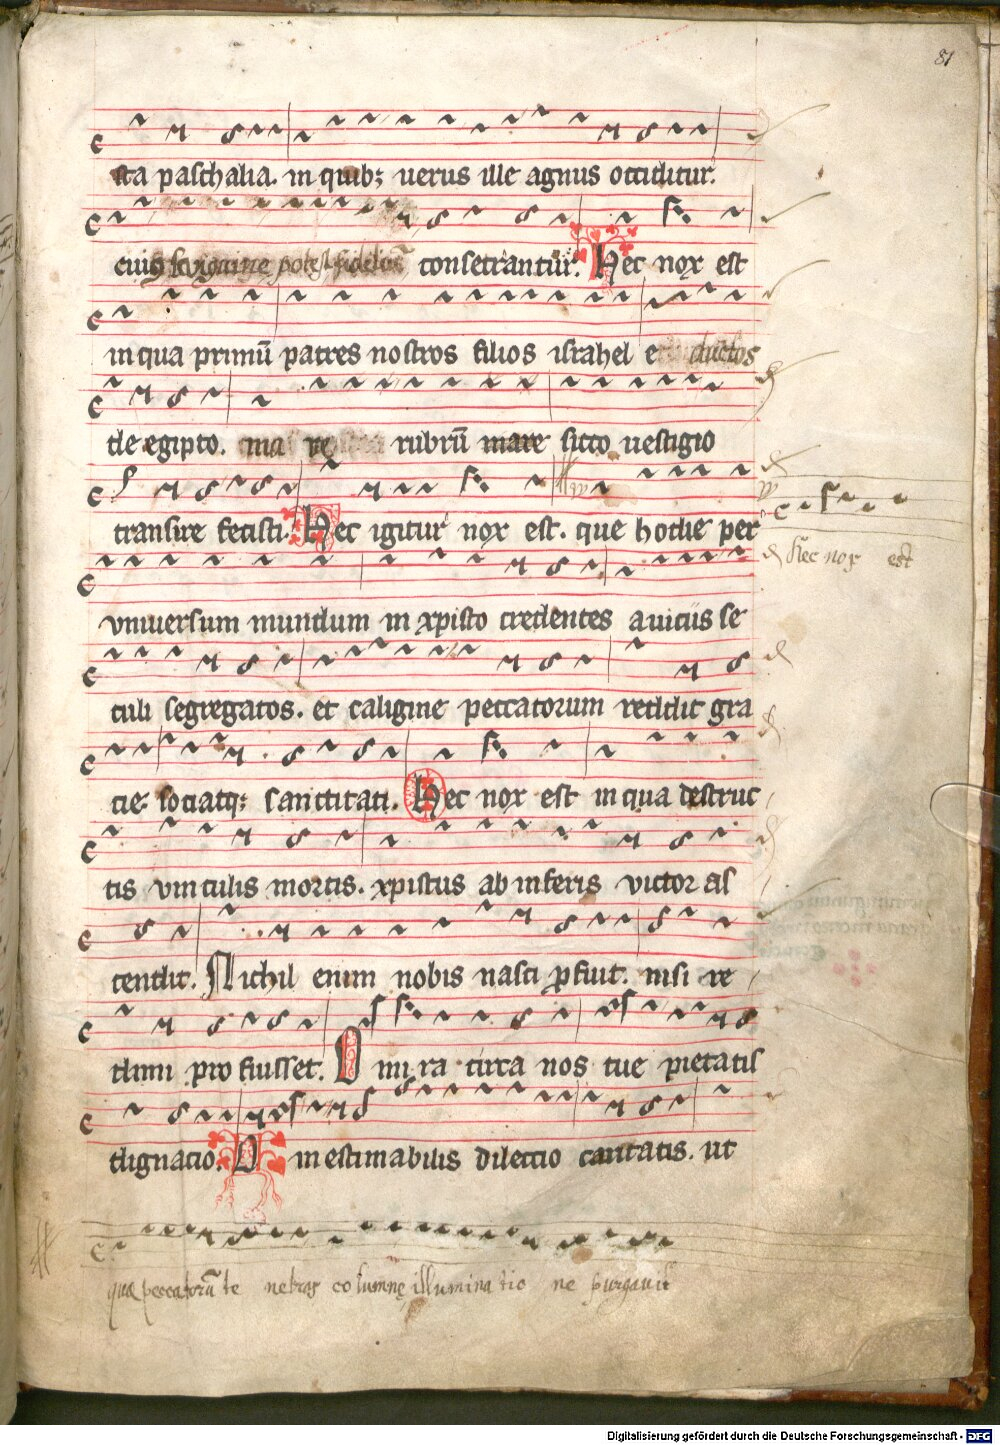 81
sta paschalia. in quib; uerus ille agnus occiditur.
eius sanguine postes fidelium consecrantur. Hec nox est
in qua primū patres nostros filios israhel eductos
de egipto. mare rubrū mare sicco uestigio
transire fecisti. Hec igitur nox est. que hodie per
Hec nox est
vniuersum mundum in xpisto credentes a uiciis se
culi segregatos. et caligine peccatorum reddit gra
cie. sociatq; sanctitati. Hec nox est in qua destruc
tis vinculis mortis. xpistus ab inferis victor as
cendit. Nichil enim nobis nasci ꝓfuit. nisi re
dimi profuisset. O mira circa nos tue pietatis
dignacio. O inestimabilis dileccio caritatis. ut
quæ peccatorū te nebras columnę illumina tio ne purgauit
Digitalisierung gefördert durch die Deutsche Forschungsgemeinschaft - DFG